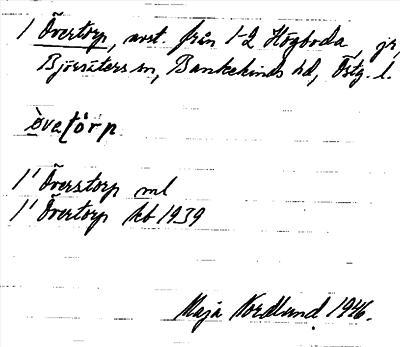 1 Övertorp, avst. från 1-2 Högboda jr,
Björsäters sn, Bankekinds hd, Östg. l.
òvatörp
1' Överstorp ml
1' Övertorp kb 1939
Maja Nordlund 1946.